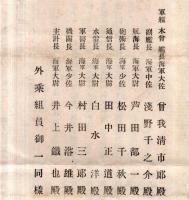 軍艦木曾 艦長海軍大佐 曾我清市郎殿
副艦長海軍中佐 淺野千之介殿
航海長海軍大尉 芦田部一殿
砲術長海軍少佐 松田千秋殿
通信長海軍大尉 田中正道殿
水雷長海軍大尉 白水洋殿
軍醫長海軍大尉 村田三郎殿
機關長海軍少佐 今井港雄殿
主計長海軍大尉 井上鐵也殿
外乘組員御一同樣